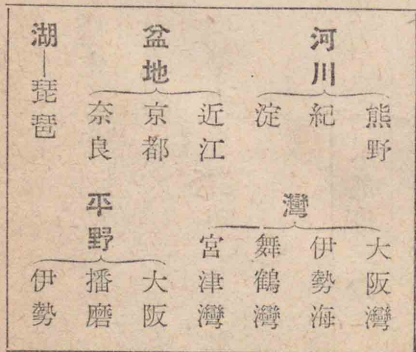 河川
熊野
紀
淀
盆地
近江
京都
奈良
湖—琵琶
灣
大阪灣
伊勢海
舞鶴灣
宮津灣
平野
大阪
播磨
伊勢